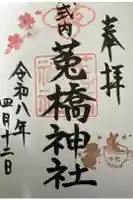 奉拝
式内
菟橋神社
令和八年
四月十二日